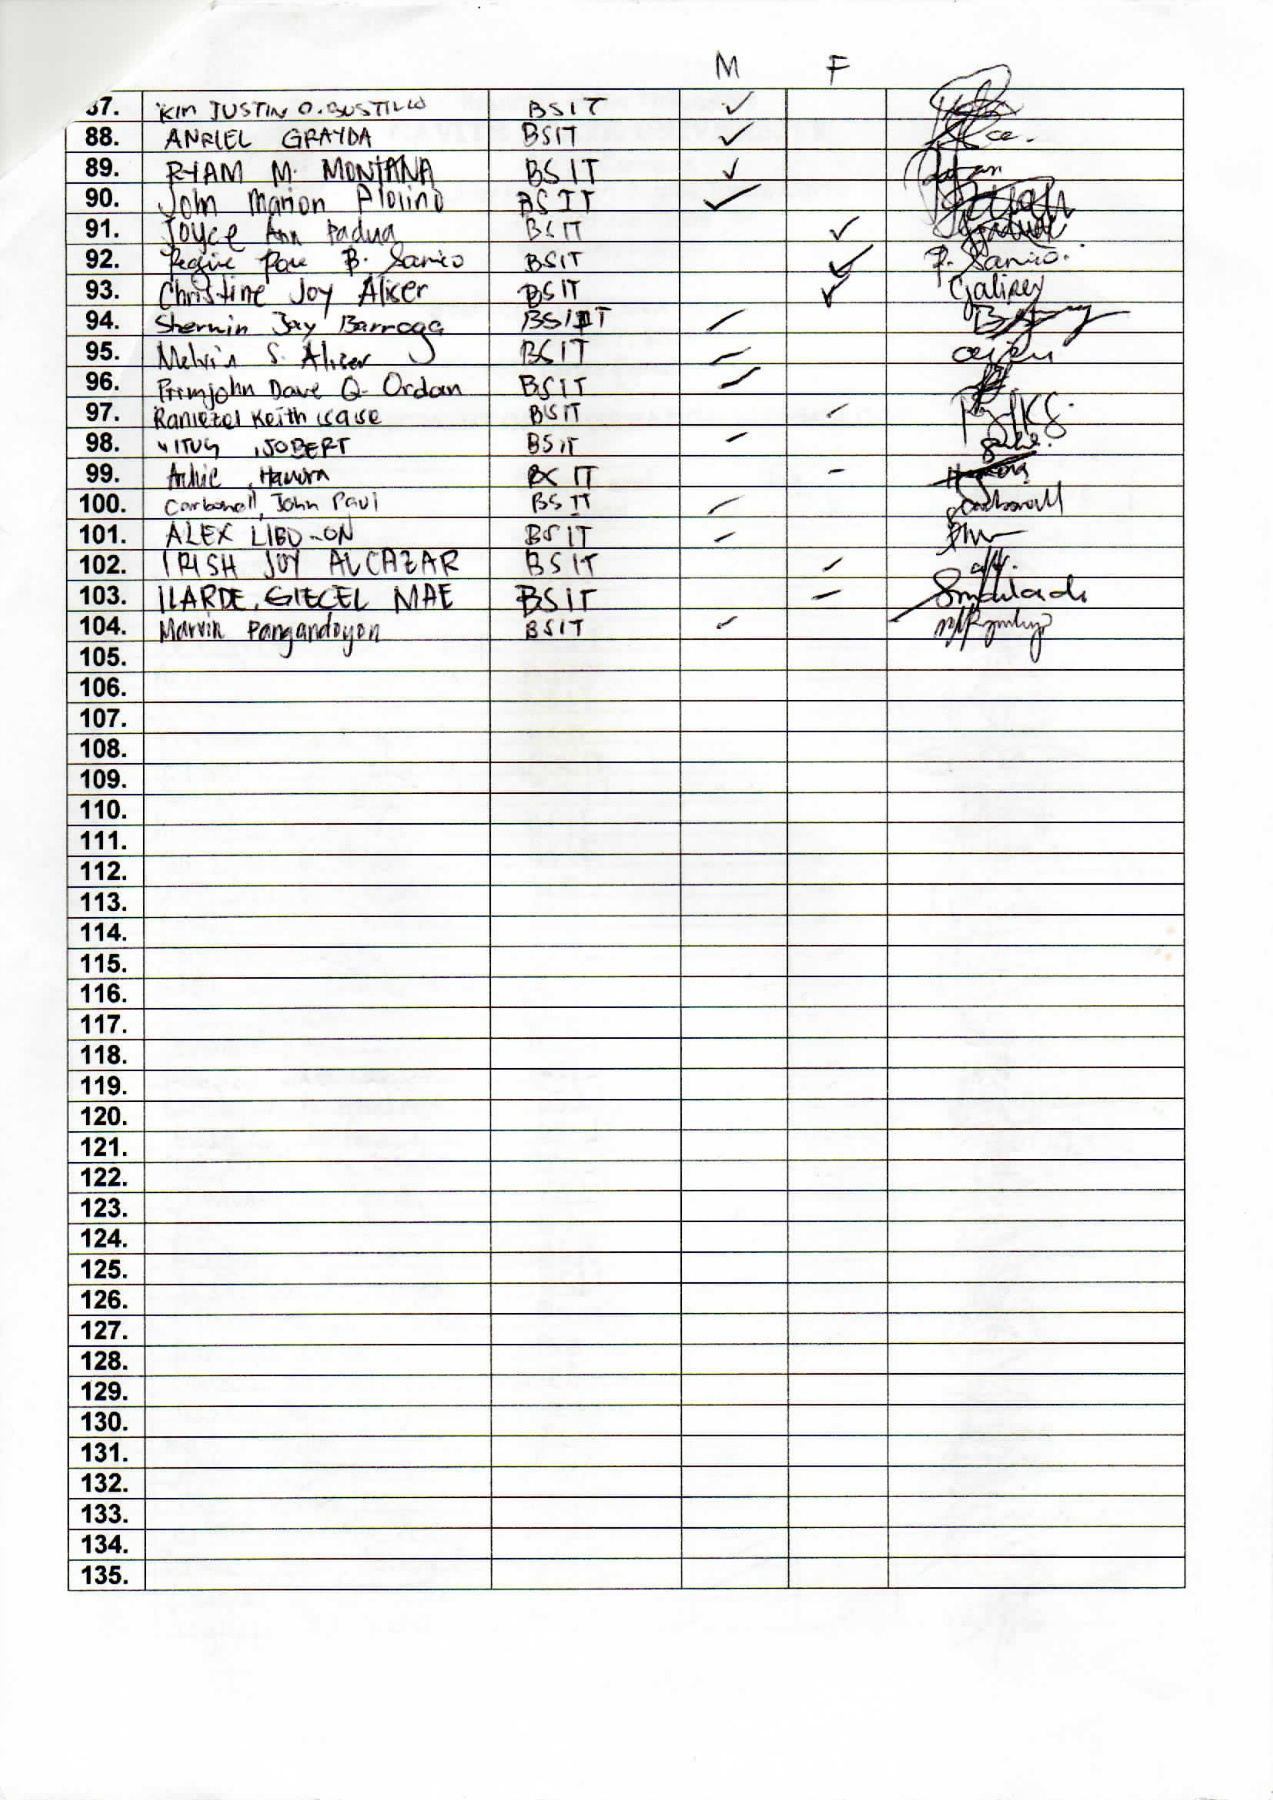 M F
87. KIM JUSTIN O. BUSTILLO BSIT ✓
88. ANRIEL GRAYDA BSIT ✓
89. RYAM M. MONTAÑA BSIT ✓
90. John Marion BSIT ✓
91. Joyce Ann Padua BSIT ✓
92. B. Sanico BSIT ✓ P. Sanico.
93. Christine Joy Aliser BSIT ✓
94. Sherwin Jay Barroga BSIT ✓
95. Melvin S. Aliser BSIT ✓
96. Premjohn Dave Q. Ordan BSIT ✓
97. Raniezel Keith BSIT ✓
98. VITUG, JOBERT BSIT ✓
99. Hanna BSIT -
100. Carbonell, John Paul BSIT ✓ Carbonell
101. ALEX LIBO-ON BSIT ✓
102. IRISH JOY ALCAZAR BSIT ✓
103. ILARDE, GIECEL MAE BSIT ✓
104. Marvin Pangandoyon BSIT ✓
105.
106.
107.
108.
109.
110.
111.
112.
113.
114.
115.
116.
117.
118.
119.
120.
121.
122.
123.
124.
125.
126.
127.
128.
129.
130.
131.
132.
133.
134.
135.